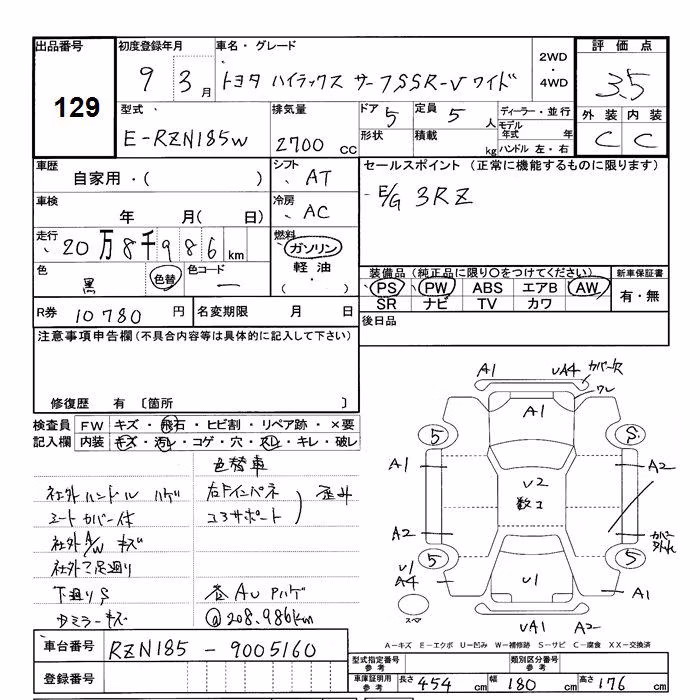 出品番号 初度登録年月 車名・グレード 2WD・4WD 評価点
129 9 3月 トヨタ ハイラックス サーフSSR-V ワイド 3.5
型式 排気量 ドア 5 定員 5人 ディーラー・並行 外装 内装
E-RZN185W 2700cc 形状 積載 kg モデル年式 年 C C
ハンドル 左・右
車歴 シフト セールスポイント (正常に機能するものに限ります)
自家用・( ) AT E/G 3RZ
車検 冷房
年 月( 日) AC
走行 燃料
20万8千986km ガソリン
軽油・( )
色 色替 色コード 装備品(純正品に限り○をつけてください) 新車保証書
黒 ー PS PW ABS エアB AW 有・無
SR ナビ TV カワ
R券 10780円 名変期限 月 日 後日品
注意事項申告欄(不具合内容等は具体的に記入して下さい)
修復歴 有 〔箇所 〕
検査員 FW キズ・飛石・ヒビ割・リペア跡・×要
記入欄 内装 キズ・汚レ・コゲ・穴・スレ・キレ・破レ
色替車
社外ハンドル ハゲ 右Fインパネ
シートカバー付 コアサポート
社外A/W キズ
社外マ足廻り
下廻りS
ドミラーキズ @208.986km
A1 UA4 カバー欠
A1 ワレ
5 S
A1 A2
U2
数コ
A2 カバー
U1 A4 5 5
U1 A1
スマ
UA1 A2
A-キズ E-エクボ U-凹み W-補修跡 S-サビ C-腐食 XX-交換済
車台番号 RZN185-9005160
登録番号
型式指定番号 参考 類別区分番号 参考
車庫証明用 参考 長さ 454cm 幅 180cm 高さ 176cm